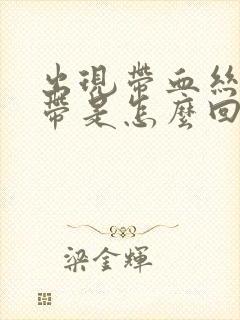 出現帶血絲
帶是怎麼回
梁金輝